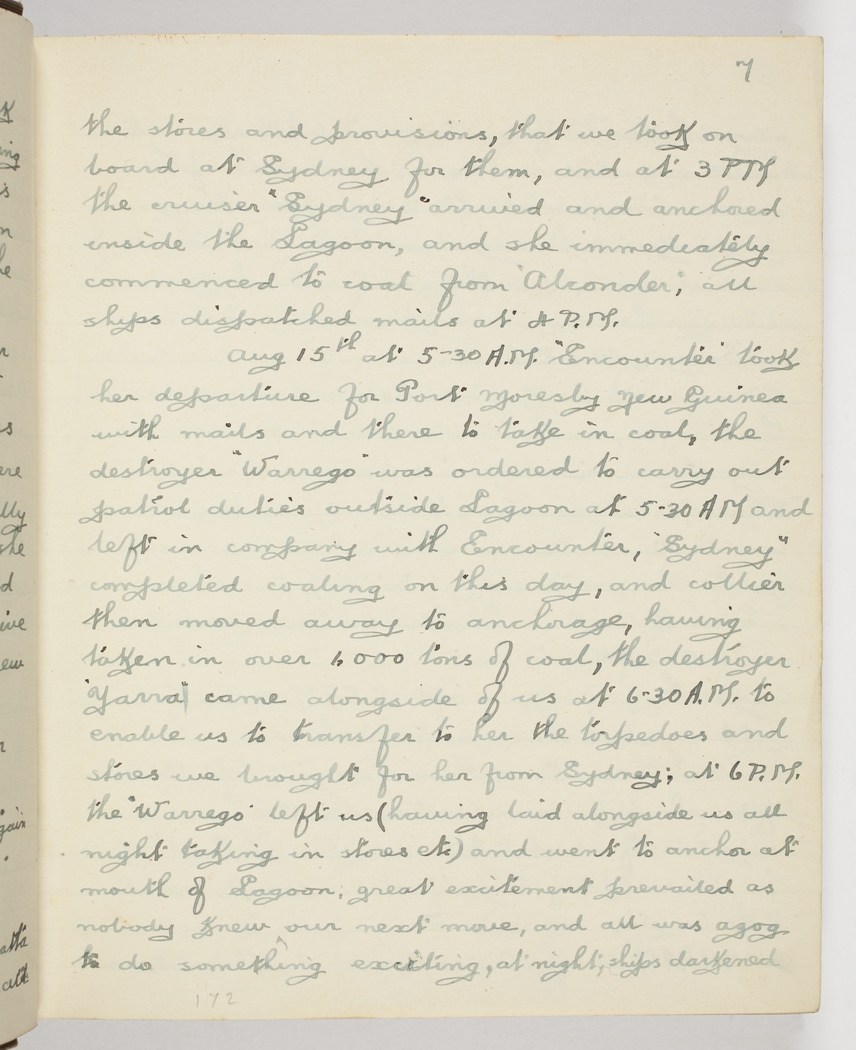 7
the stores and provisions, that we took on
board at Sydney for them, and at 3 PM
the cruiser "Sydney" arrived and anchored
inside the Lagoon, and she immediately
commenced to coal from "Alconder", all
ships dispatched mails at 4 P.M.
Aug 15th at 5-30 A.M. "Encounter" took
her departure for Port Moresby New Guinea
with mails and there to take in coal, the
destroyer "Warrego" was ordered to carry out
patrol duties outside Lagoon at 5-30 AM and
left in company with Encounter, "Sydney"
completed coaling on this day, and collier
then moved away to anchorage, having
taken in over 1,000 tons of coal, the destroyer
"Yarra" came alongside of us at 6-30 A.M. to
enable us to transfer to her the torpedoes and
stores we brought for her from Sydney; at 6 P.M.
the "Warrego" left us (having laid alongside us all
night taking in stores etc) and went to anchor at
mouth of Lagoon, great excitement prevailed as
nobody knew our next move, and all was agog
to do something exciting, at night, ships darkened
172